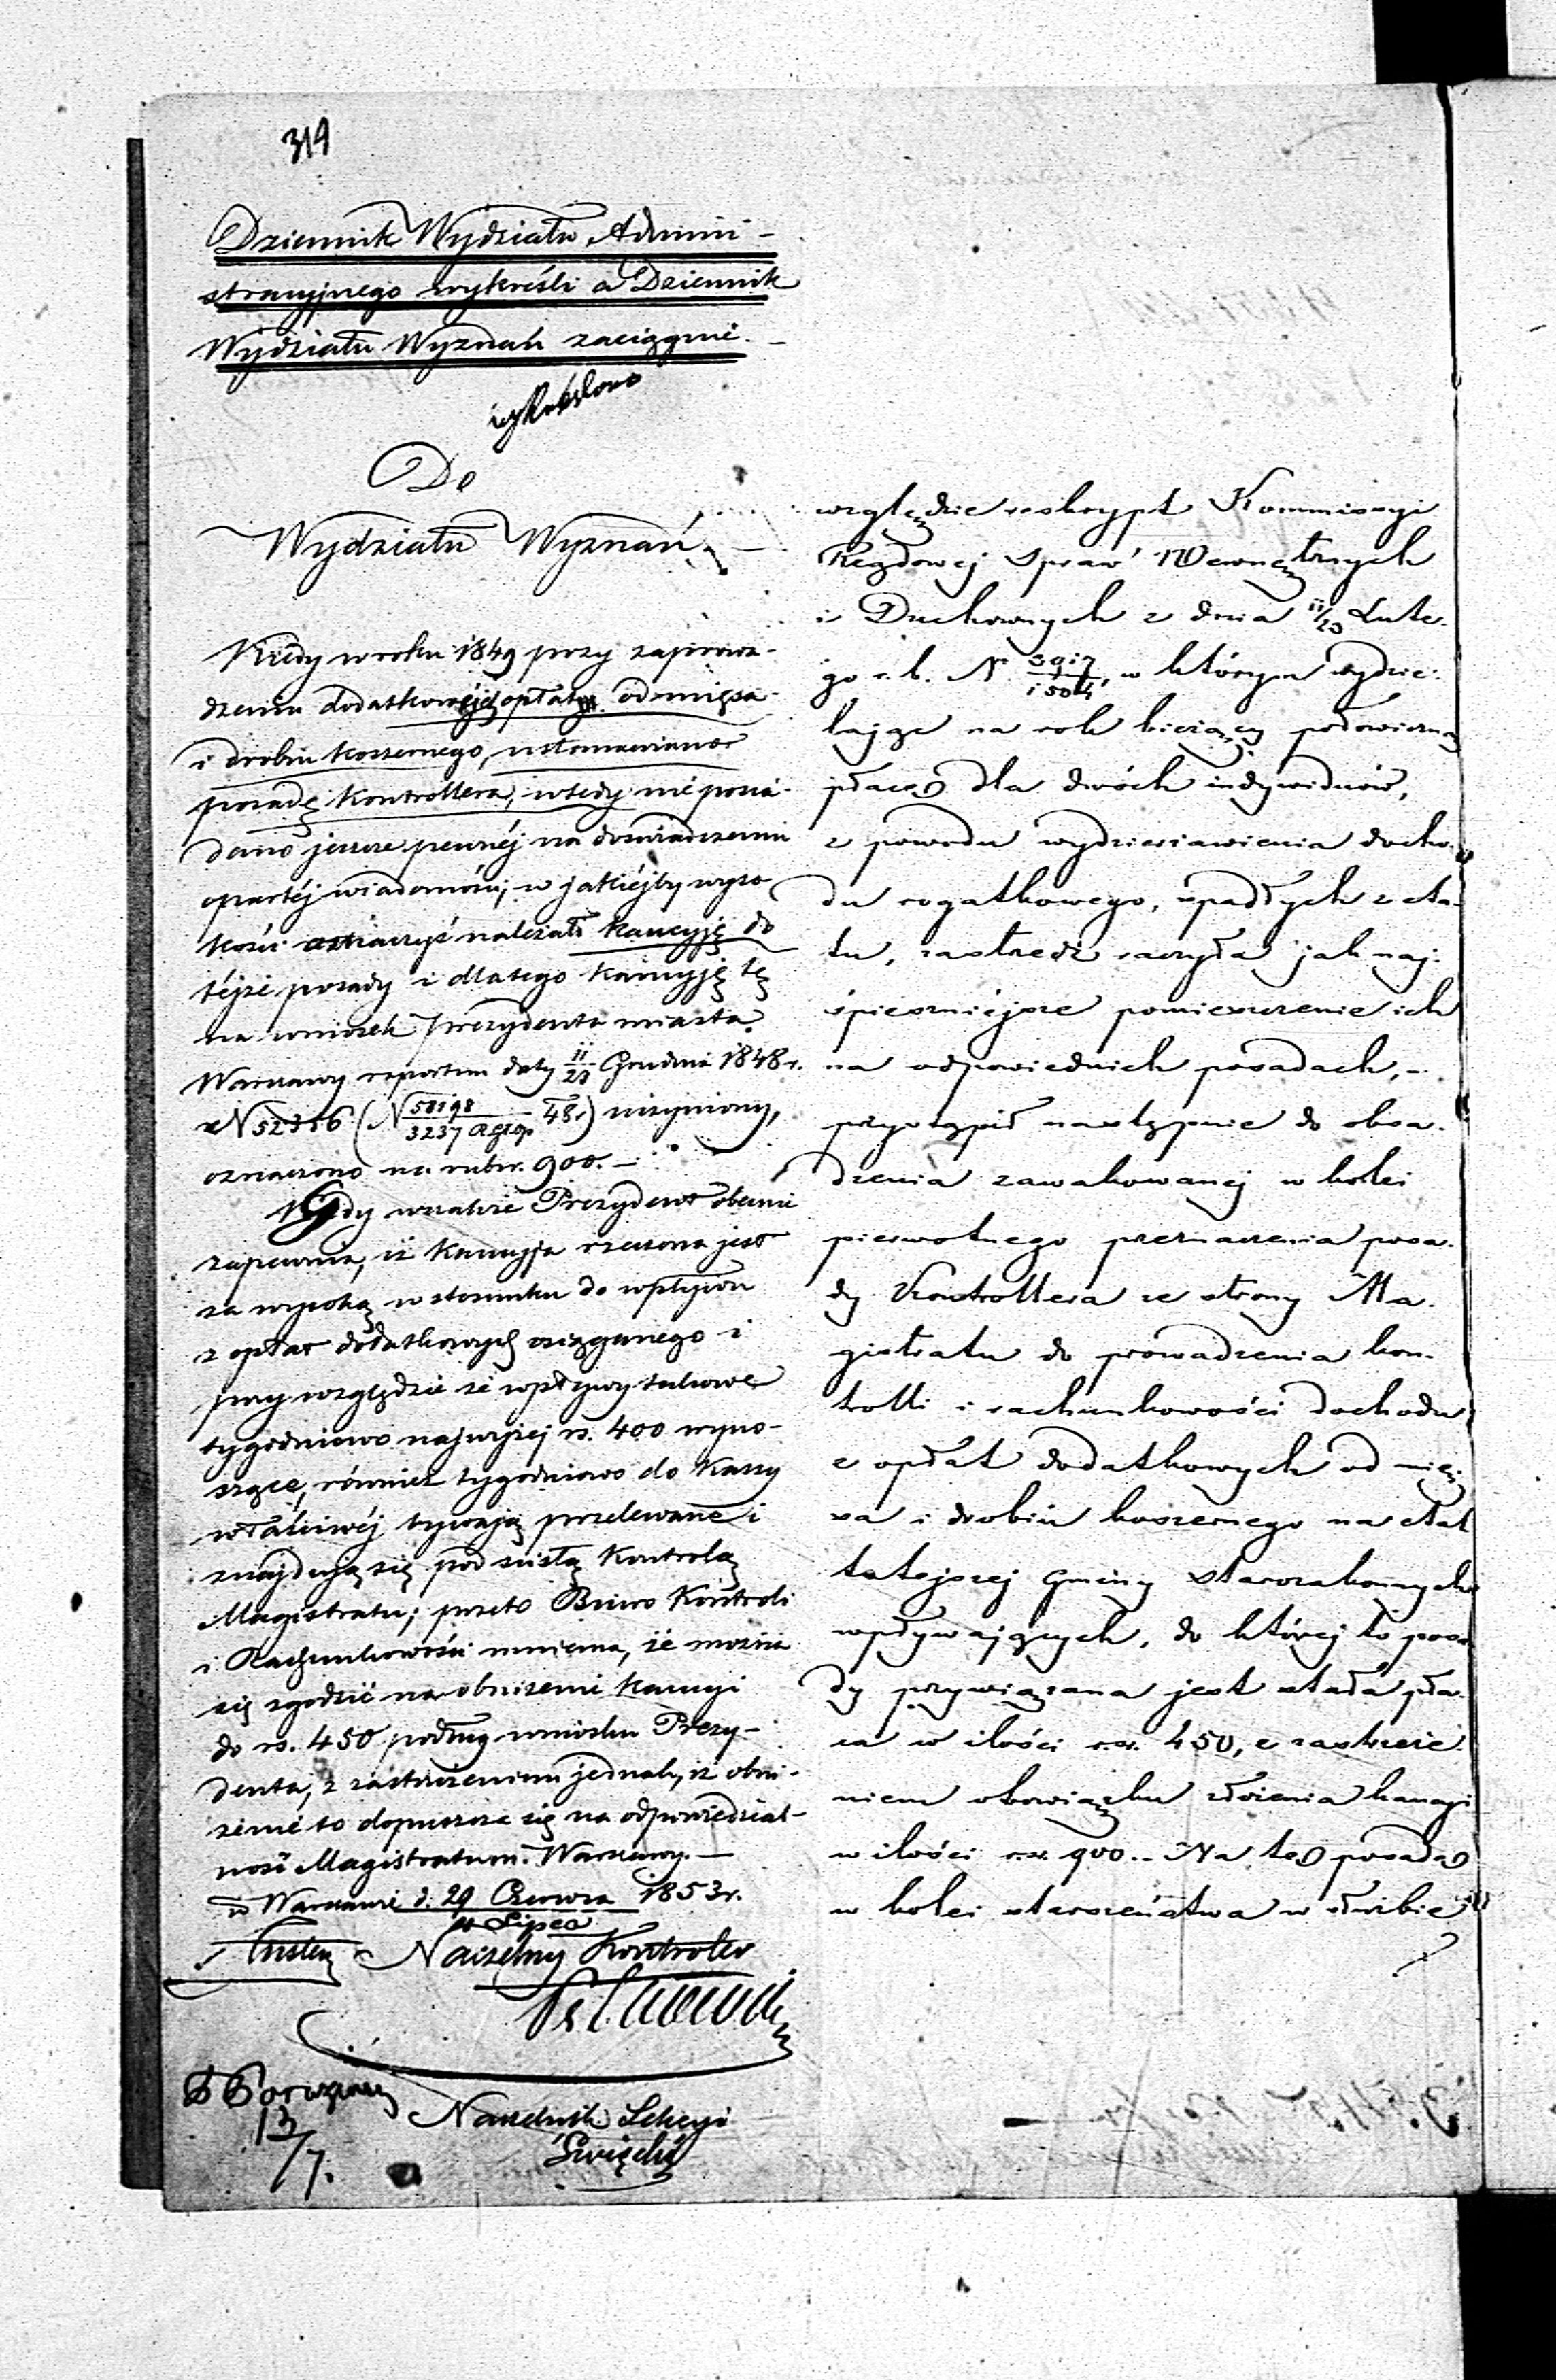 319
Dziennik Wydziału Admini-
stracyjnego wykreśli a Dziennik
Wydziału Wyznań zaciągnie. -
wykreślono
Do
Wydziału Wyznań. -
Kiedy w roku 1849 przy zaprowa-
dzeniu dodatkowéj opłaty od mięsa
i drobiu koszernego, ustanawiano
posadę Kontrollera, wtedy nie posia-
dano jeszcze pewnéj na doświadczeniu
opartéj wiadomości, w jakiéjby wyso
kości oznaczyć należało kaucyję do
téjże posady i dlatego kaucyję tę
na wniosek Prezydenta miasta
Warszawy raportem daty 11/23 Grudnia 1848 r.
N 52316 (N 58198/3237 48 r.) uczyniony,
oznaczono na rubsr. 900. -
Gdy wszakże Prezydent obecnie
zapewnia, iż Kaucyja rzeczona jest
za wysoką w stosunku do wpływu
z opłat dodatkowych osiąganego i
przy względzie że wpływy takowe
tygodniowo najwyżej rs. 400 wyno-
szące, również tygodniowo do Kassy
właściwéj bywają przelewane i
znajdują się pod ścisłą Kontrolą
Magistratu; przeto Biuro Kontroli
i Rachunkowości mniema, że można
się zgodzić na obniżenie kaucyi
do rs. 450 podług wniosku Prezy-
denta, z zastrzeżeniem jednak, iż obni-
żenie to dopuszcza się na odpowiedzial-
ność Magistratu m. Warszawy. -
w Warszawie d. 29 Czerwca 1853 r.
11 Lipca
Naczelny Kontroler
13/7.
Naczelnik Sekcyi
Święcki
względzie reskrypt Kommissyi
Rządowej Spraw Wewnętrznych
i Duchownych z dnia 11/23 Lute-
go r. b. N. 3917/1504, w którym wydzie-
lając na rok bieżący połowiczną
płacę dla dwóch indywiduów,
z powodu wydzierżawienia docho-
du rogatkowego, spadłych z eta-
tu, zastrzedz raczyła jak naj-
śpieszniejsze pomieszczenie ich
na odpowiednich posadach, -
przystąpił następnie do obsa-
dzenia zawakowanej w kolei
pierwotnego przeznaczenia posa-
dy Kontrollera ze strony Ma-
gistratu do prowadzenia kon-
trolli i rachunkowości dochodu
z opłat dodatkowych od mię-
sa i drobiu koszernego na etat
tutejszej Gminy Starozakonnych
wpływających, do której to posa
dy przywiązana jest stała pła-
ca w ilości r.sr. 450, z zastrzeże-
niem obowiązku złożenia kaucyi
w ilości r.sr. 900. - Na tę posadę
w kolei starszeństwa w służbie